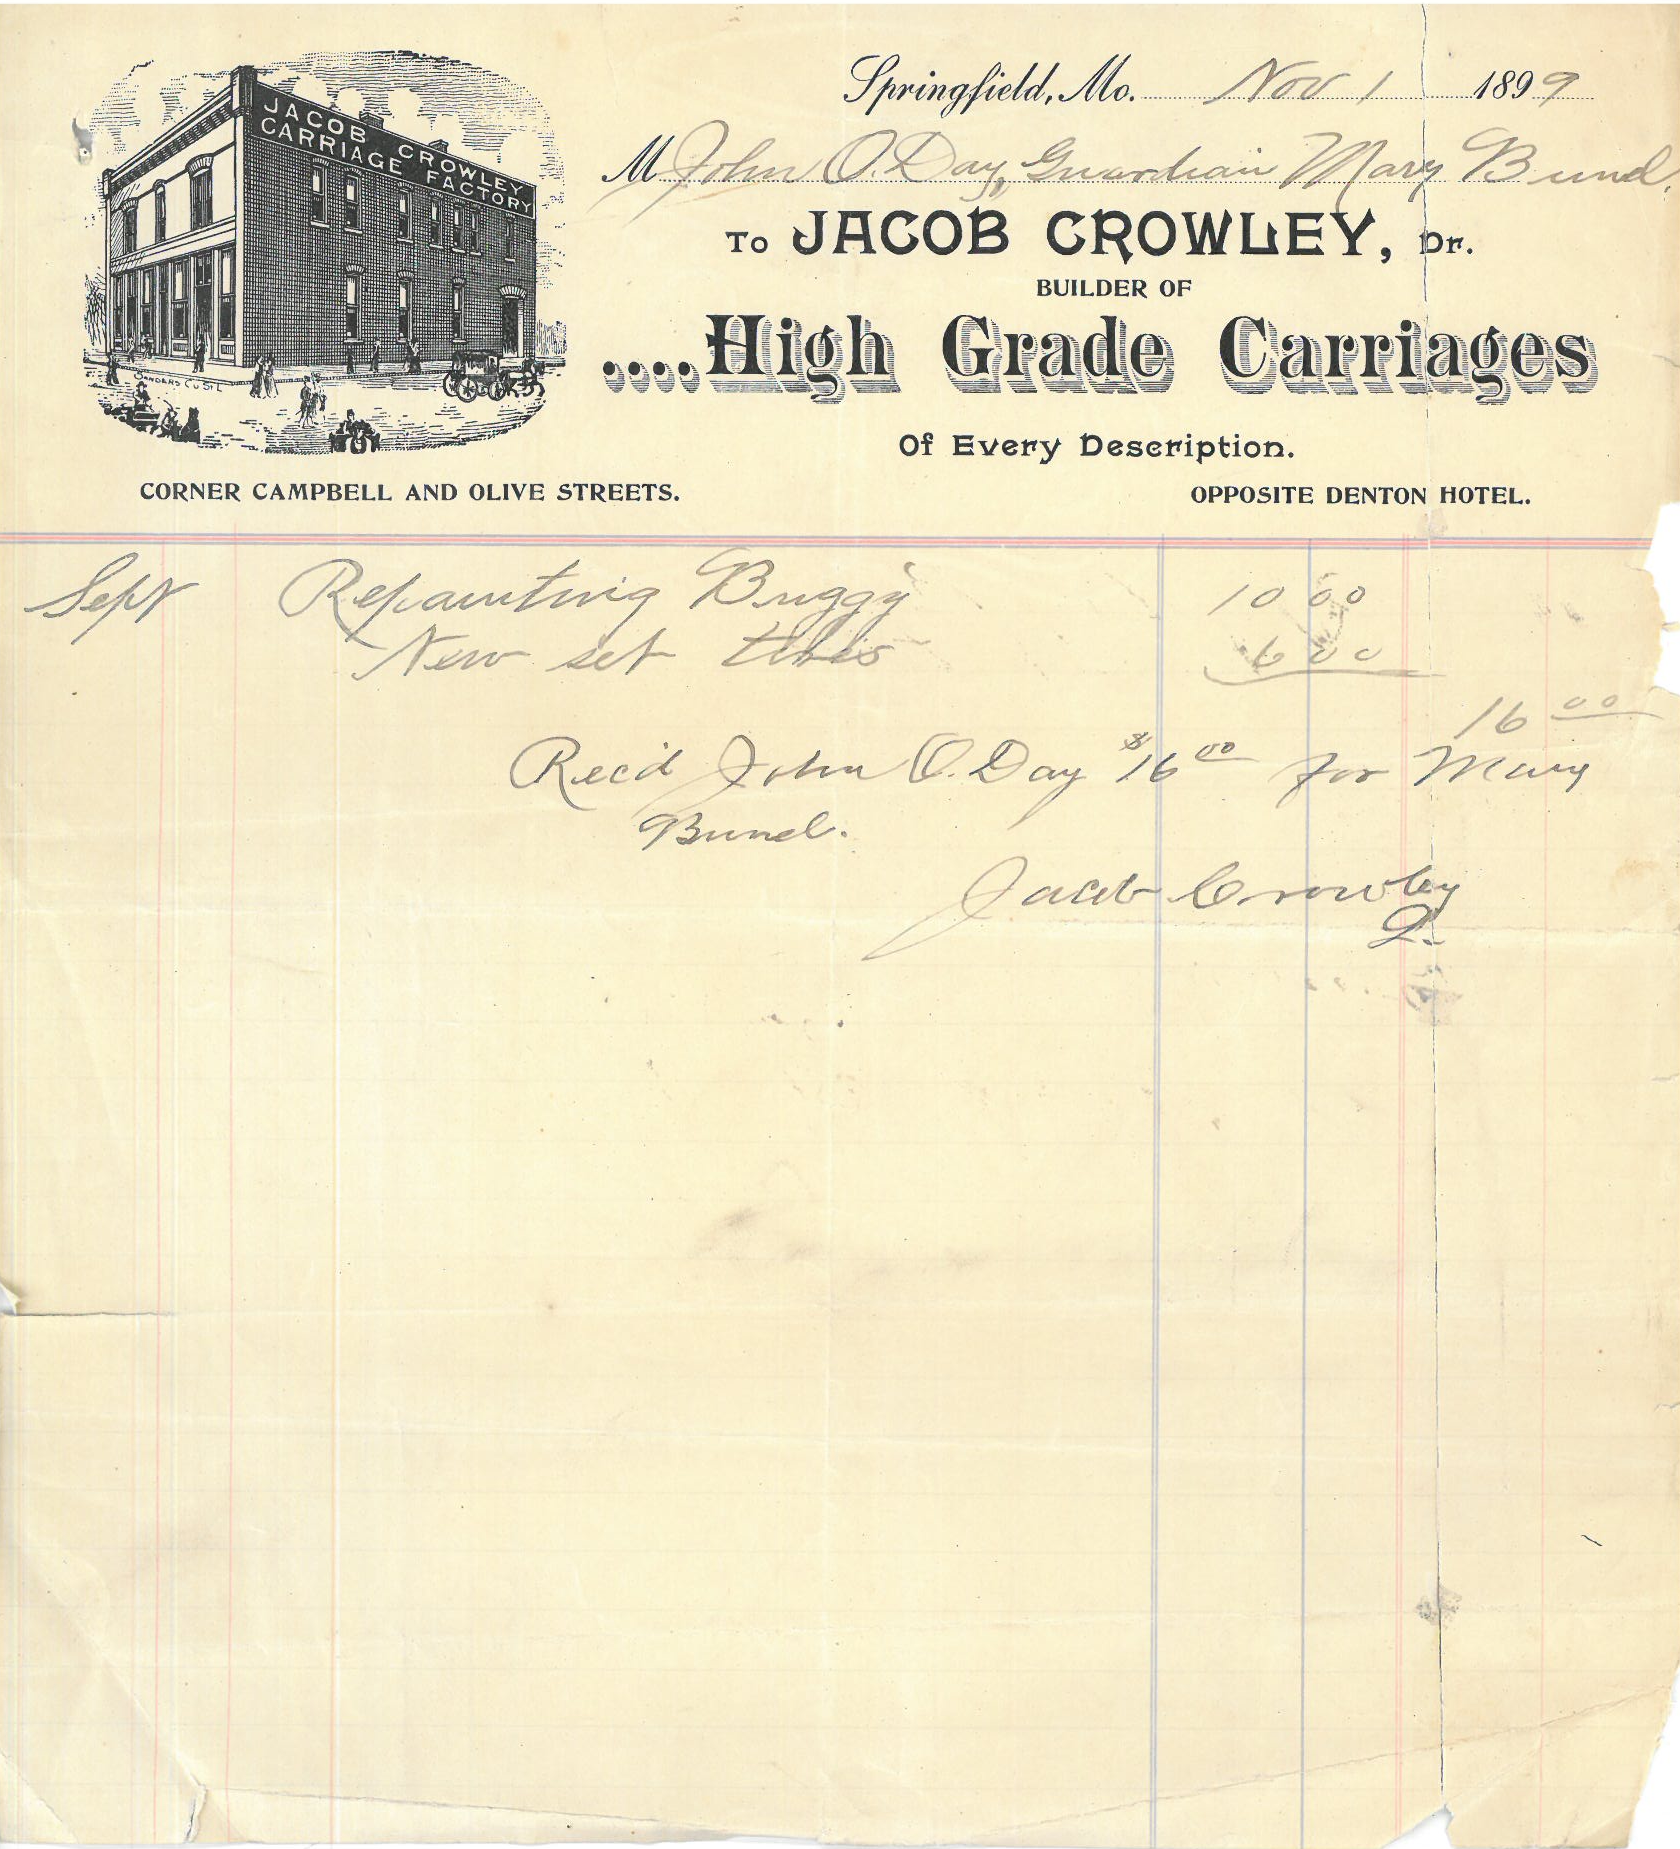 JACOB CROWLEY
CARRIAGE FACTORY
Springfield, Mo. Nov 1 1899
M John O. Day, Guardian Mary Bund.
To JACOB CROWLEY, Dr.
BUILDER OF
....High Grade Carriages
Of Every Description.
CORNER CAMPBELL AND OLIVE STREETS.
OPPOSITE DENTON HOTEL.
Sept Repainting Buggy 10 00
New set tires 6 00
16 00
Rec'd John O. Day $16 00 for Mary
Bund.
Jacob Crowley